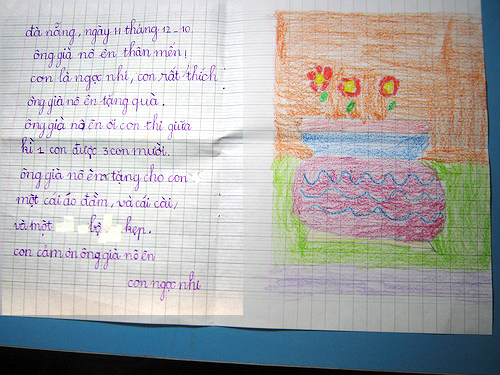 đà nẵng, ngày 11 tháng 12-10.
ông già nô en thân mến!
con là ngọc nhi, con rất thích
ông già nô en tặng quà.
ông già nô en ơi con thi giữa
kì 1 con được 3 con mười.
ông già nô en tặng cho con
một cái áo đầm, và cái cài,
và một bộ kẹp.
con cảm ơn ông già nô en
con ngọc nhi